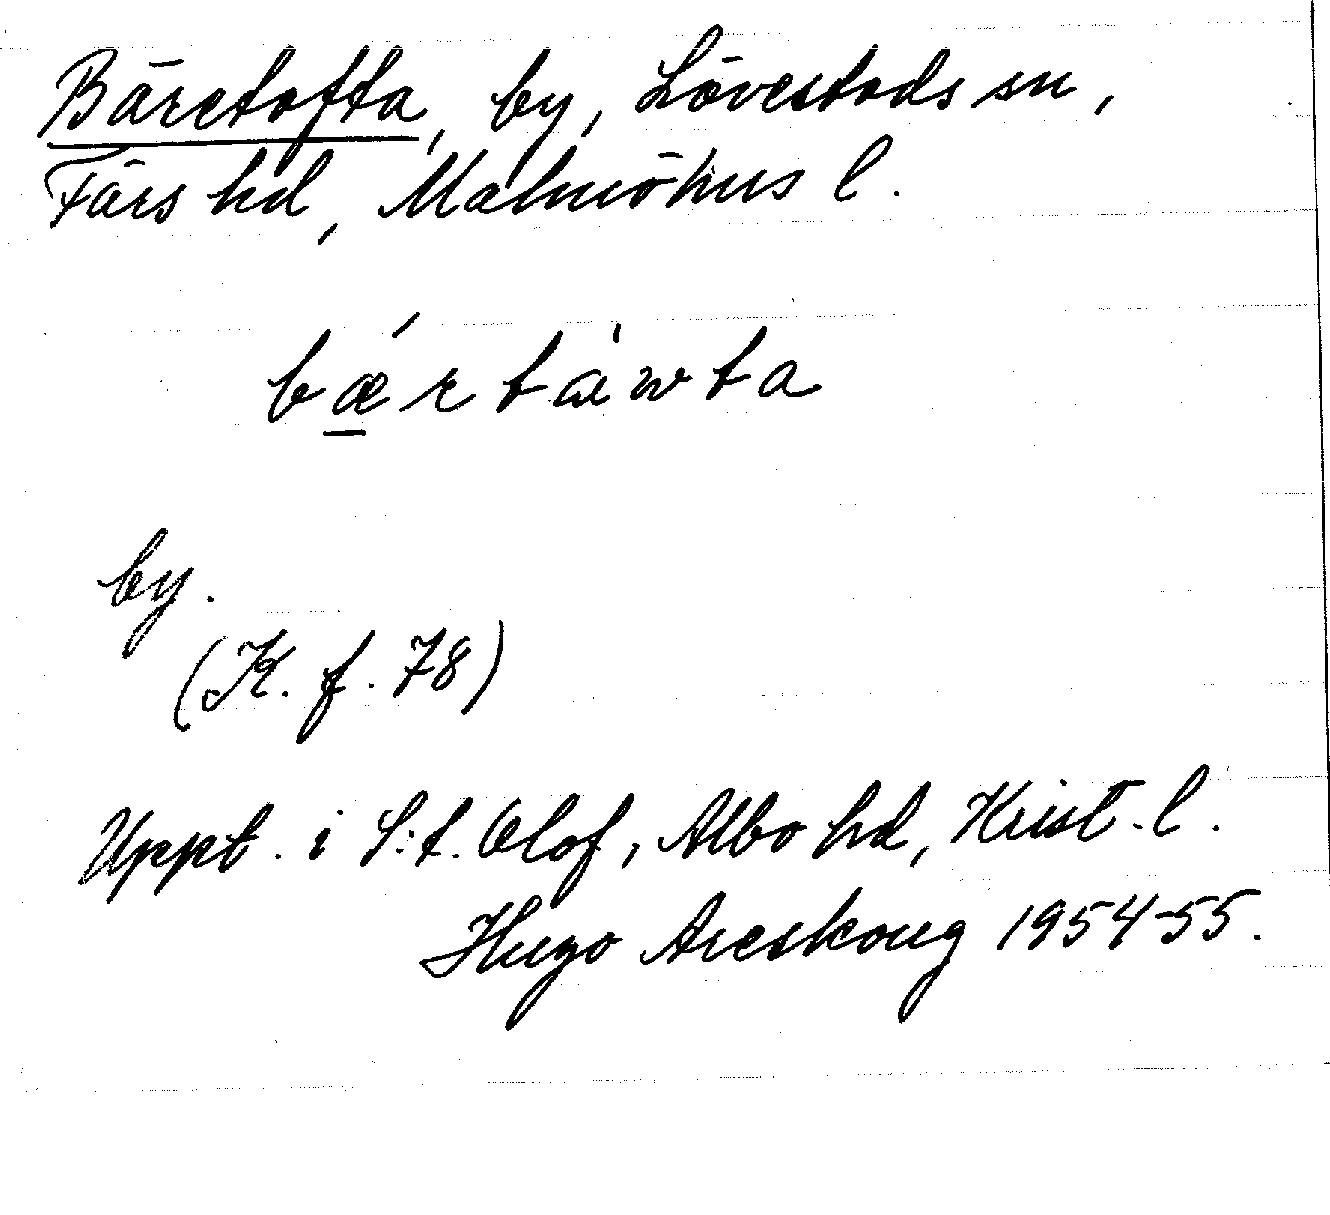 Bäretofta, by, Lövestads sn,
Färs hd, Malmöhus l.
bǽrtæ̀wta
by.
(K. f. 78)
Uppt. i S:t. Olof, Albo hd, Krist. l.
Hugo Areskoug 1954-55.